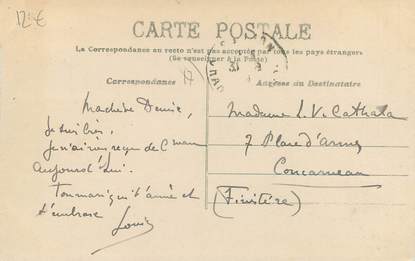 12 €
CARTE POSTALE
La Correspondance au recto n'est pas acceptée par tous les pays étrangers
(Se renseigner à la Poste)
Correspondance
Adresse du Destinataire
Ma chère Denise,
Je suis ici,
Je n'ai rien reçu de
aujourd'hui.
Ton mari qui t'aime et
t'embrasse
Louis
Madame L. V. Cathala
7 Place d'armes
Concarneau
(Finistère)